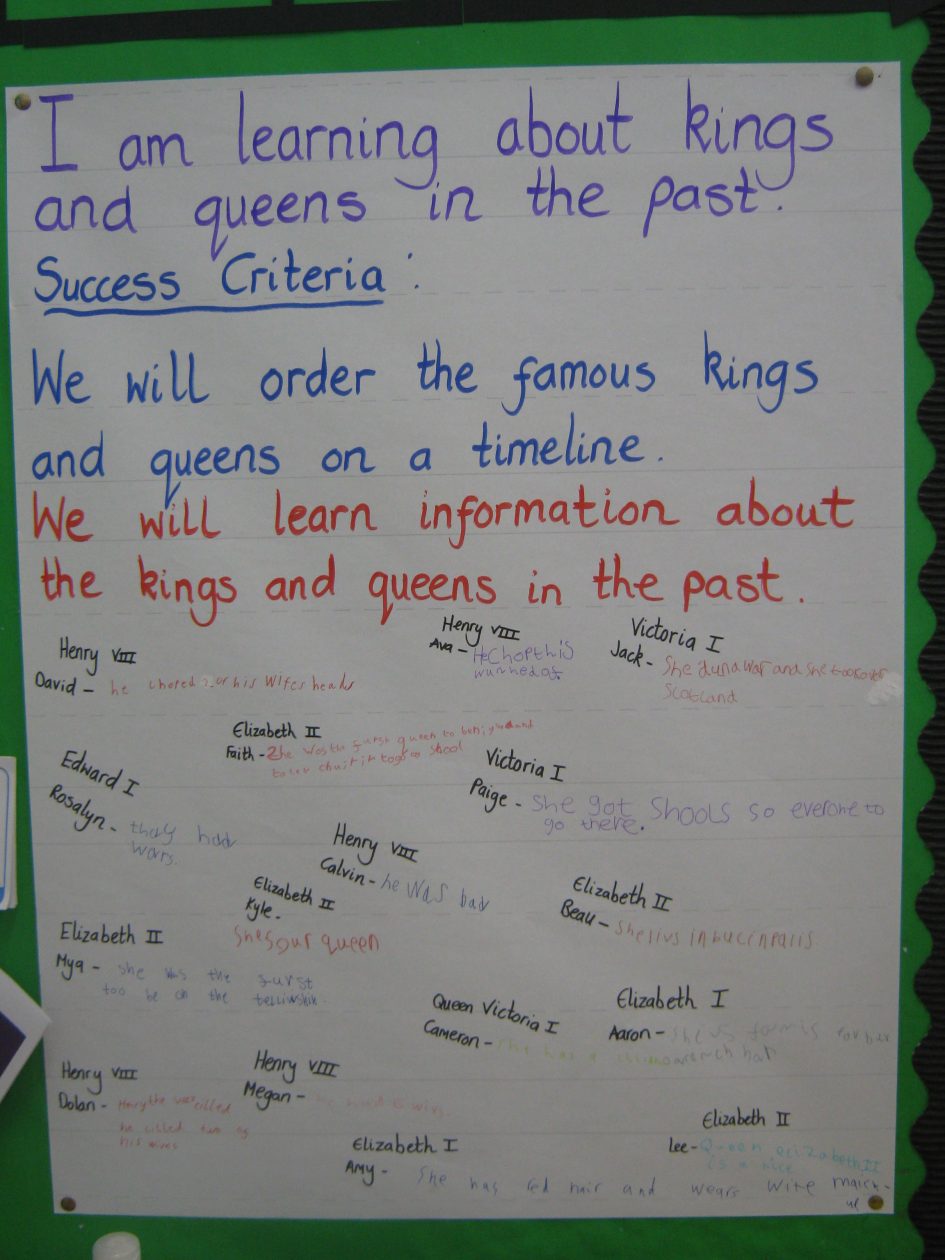 I am learning about kings
and queens in the past.
Success Criteria:
We will order the famous kings
and queens on a timeline.
We will learn information about
the kings and queens in the past.
Henry VIII
David - he choped his wifes heads
Henry VIII
Ava - He Chopt his
Victoria I
Jack- She war and she tookover
Scotland
Elizabeth II
Faith - She was the furst queen to
to school
Victoria I
Paige - She got Shools so everone to
go there.
Edward I
Rosalyn - thay had
wors.
Henry VIII
Calvin - he was bad
Elizabeth II
Kyle -
Shes our queen
Elizabeth II
Beau - She livs in bucinpalis
Elizabeth II
Mya - she was the furst
too be on the
Queen Victoria I
Cameron - She has a hat
Elizabeth I
Aaron - She is
Henry VIII
Dolan - Henry the
he cilled two of
his wives
Henry VIII
Megan - he had 6 wivs.
Elizabeth II
Lee - Queen elizabeth II
is a nice
Elizabeth I
Amy - She has red hair and wears wite